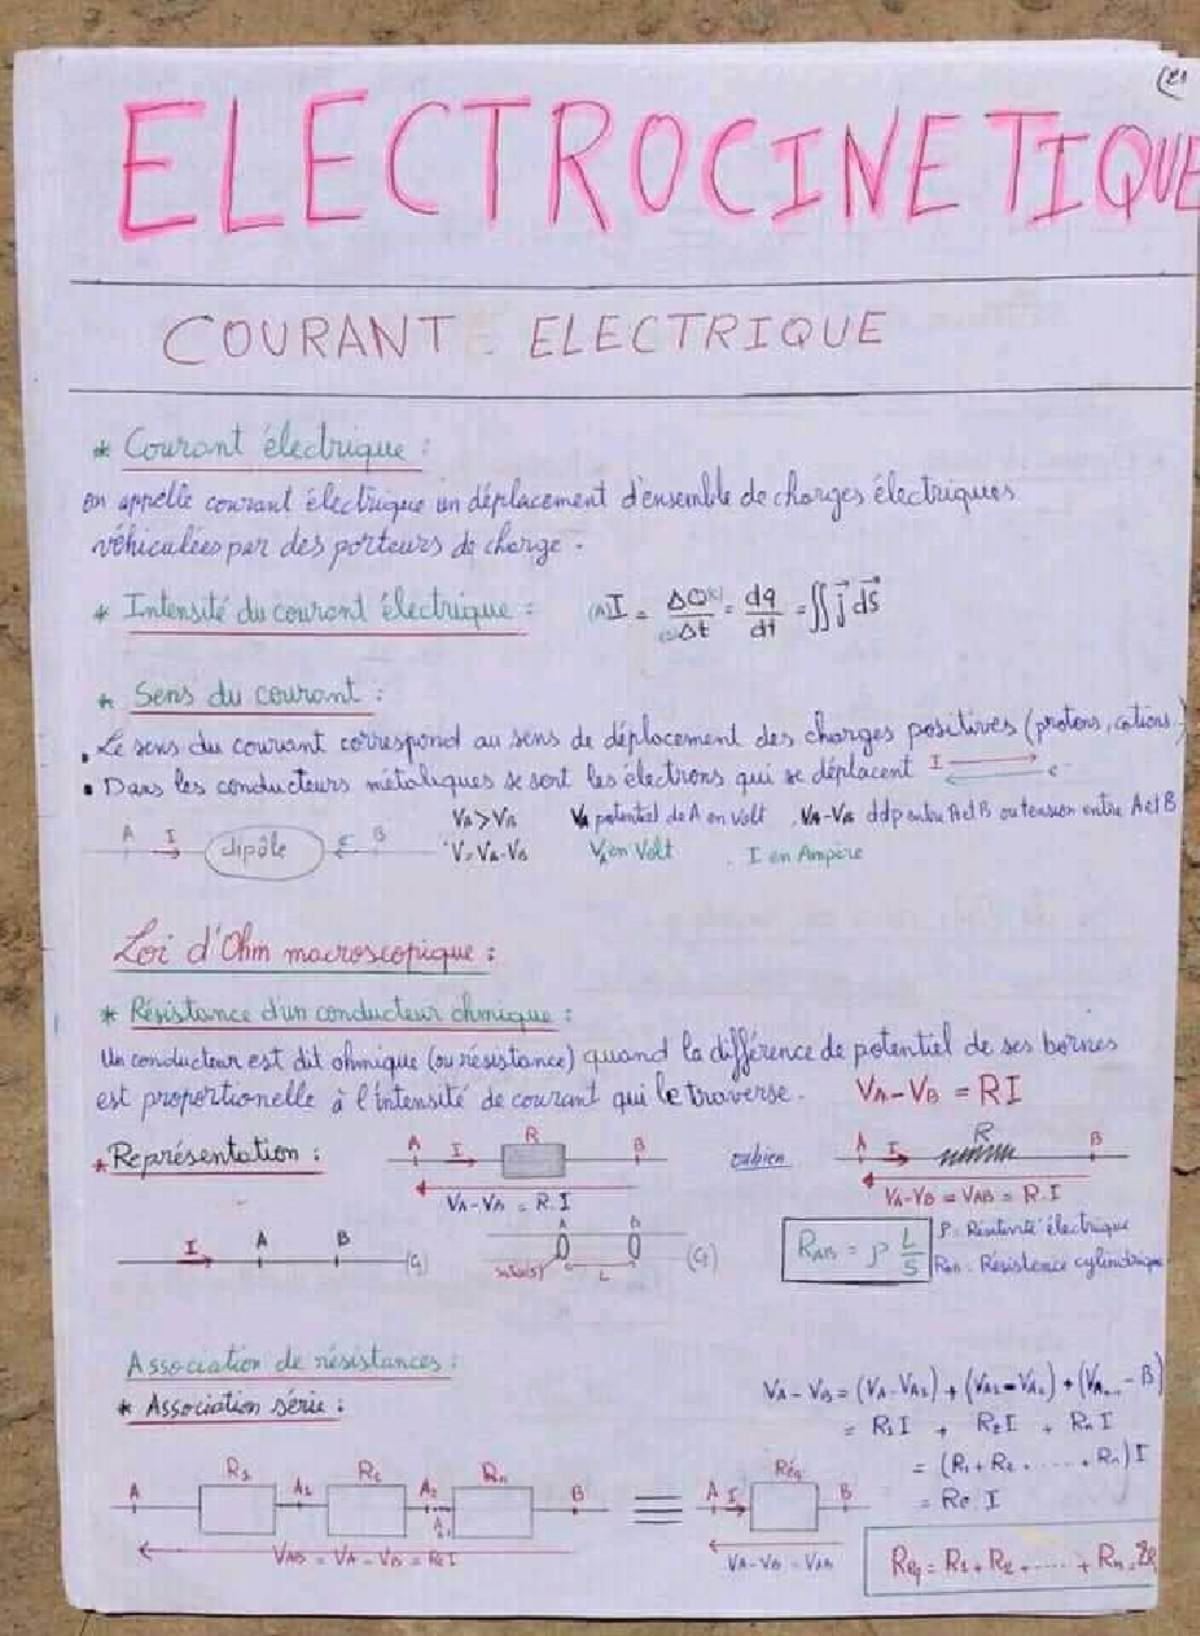 (21
ELECTROCINETIQUE
COURANT ELECTRIQUE
* Courant électrique :
on appelle courant électrique un déplacement d'ensemble de charges électriques
véhiculées par des porteurs de charge.
* Intensité du courant électrique : (A)I = ΔQ/Δt = dq/dt = ∬ j⃗ dS⃗
* Sens du courant :
• Le sens du courant correspond au sens de déplacement des charges positives (protons, cations)
• Dans les conducteurs métaliques se sont les électrons qui se déplacent I e-
A I dipôle e- B VA > VB VA potentiel de A en Volt . VA-VB ddp entre A et B ou tension entre A et B
V = VA-VB V en Volt . I en Ampère
Loi d'Ohm macroscopique :
* Résistance d'un conducteur ohmique :
Un conducteur est dit ohmique (ou résistance) quand la différence de potentiel de ses bornes
est proportionelle à l'intensité de courant qui le traverse. VA-VB = RI
* Représentation : A I R B oubien A I R B
VA-VB = R.I VA-VB = VAB = R.I
I A B (G) A B L (G) RAB = ρ L/S ρ : Résistivité électrique
RAB : Résistence cylindrique
Association de résistances :
* Association série :
VA - VB = (VA-VA1) + (VA1-VA2) + (VAn-1 - B)
= R1I + R2I + RnI
= (R1 + R2 + ..... + Rn)I
= Re I
A R1 A1 R2 A2 Rn B ≡ A I Réq B
VAB = VA - VB = ReI VA-VB = VAB
Réq = R1 + R2 + ..... + Rn = ΣRi